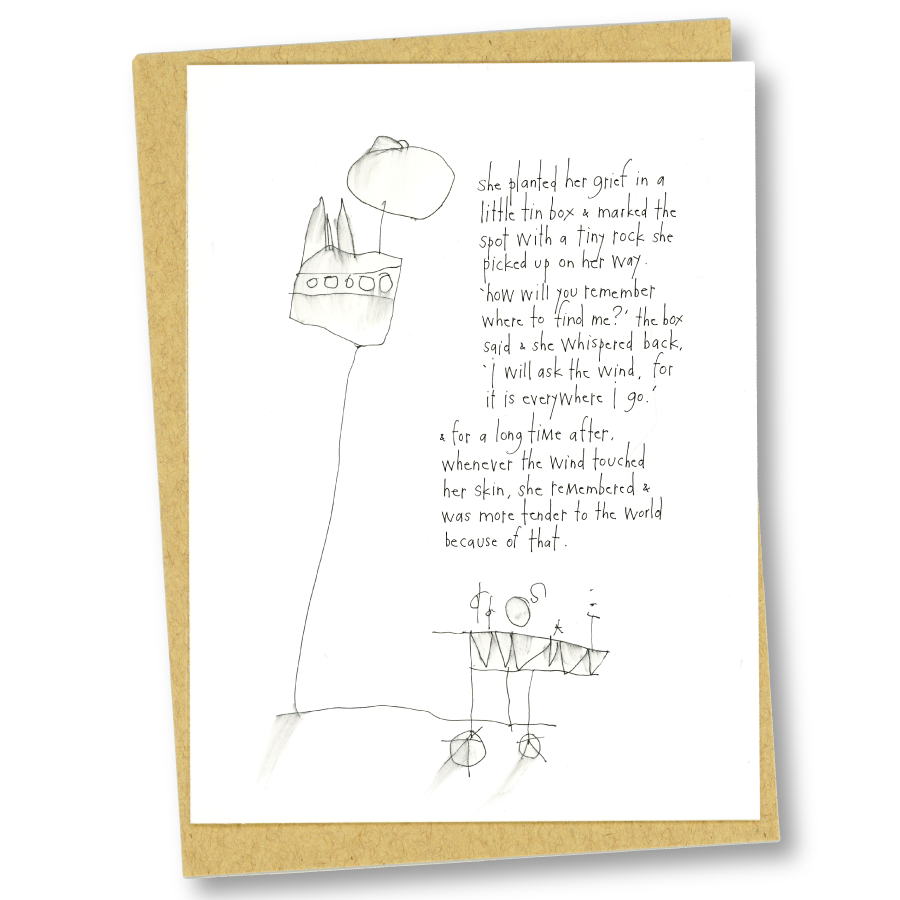 she planted her grief in a
little tin box & marked the
spot with a tiny rock she
picked up on her way.
'how will you remember
where to find me?' the box
said & she whispered back,
'i will ask the wind, for
it is everywhere i go.'
& for a long time after,
whenever the wind touched
her skin, she remembered &
was more tender to the world
because of that.